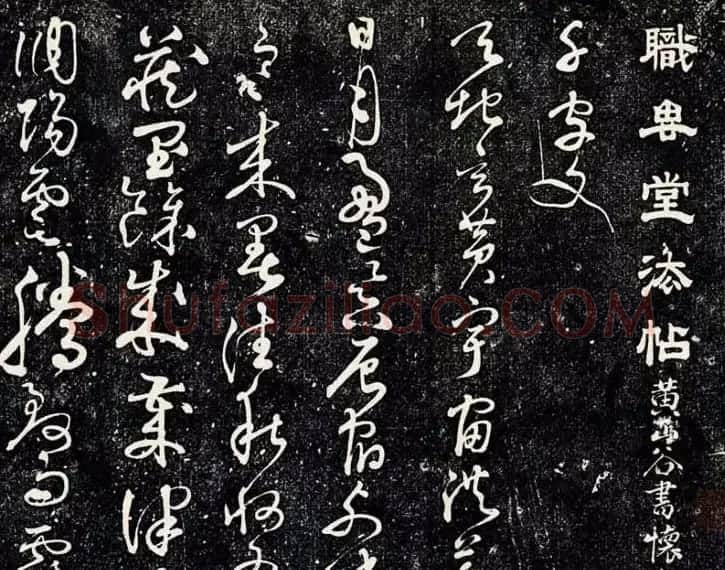 職思堂法帖黃山谷書懷
千字文
天地玄黃宇宙洪荒
日月盈昃辰宿列張
寒來暑往秋收冬
藏閏餘成歲律
調陽雲騰致雨露
Shufaziliao.COM